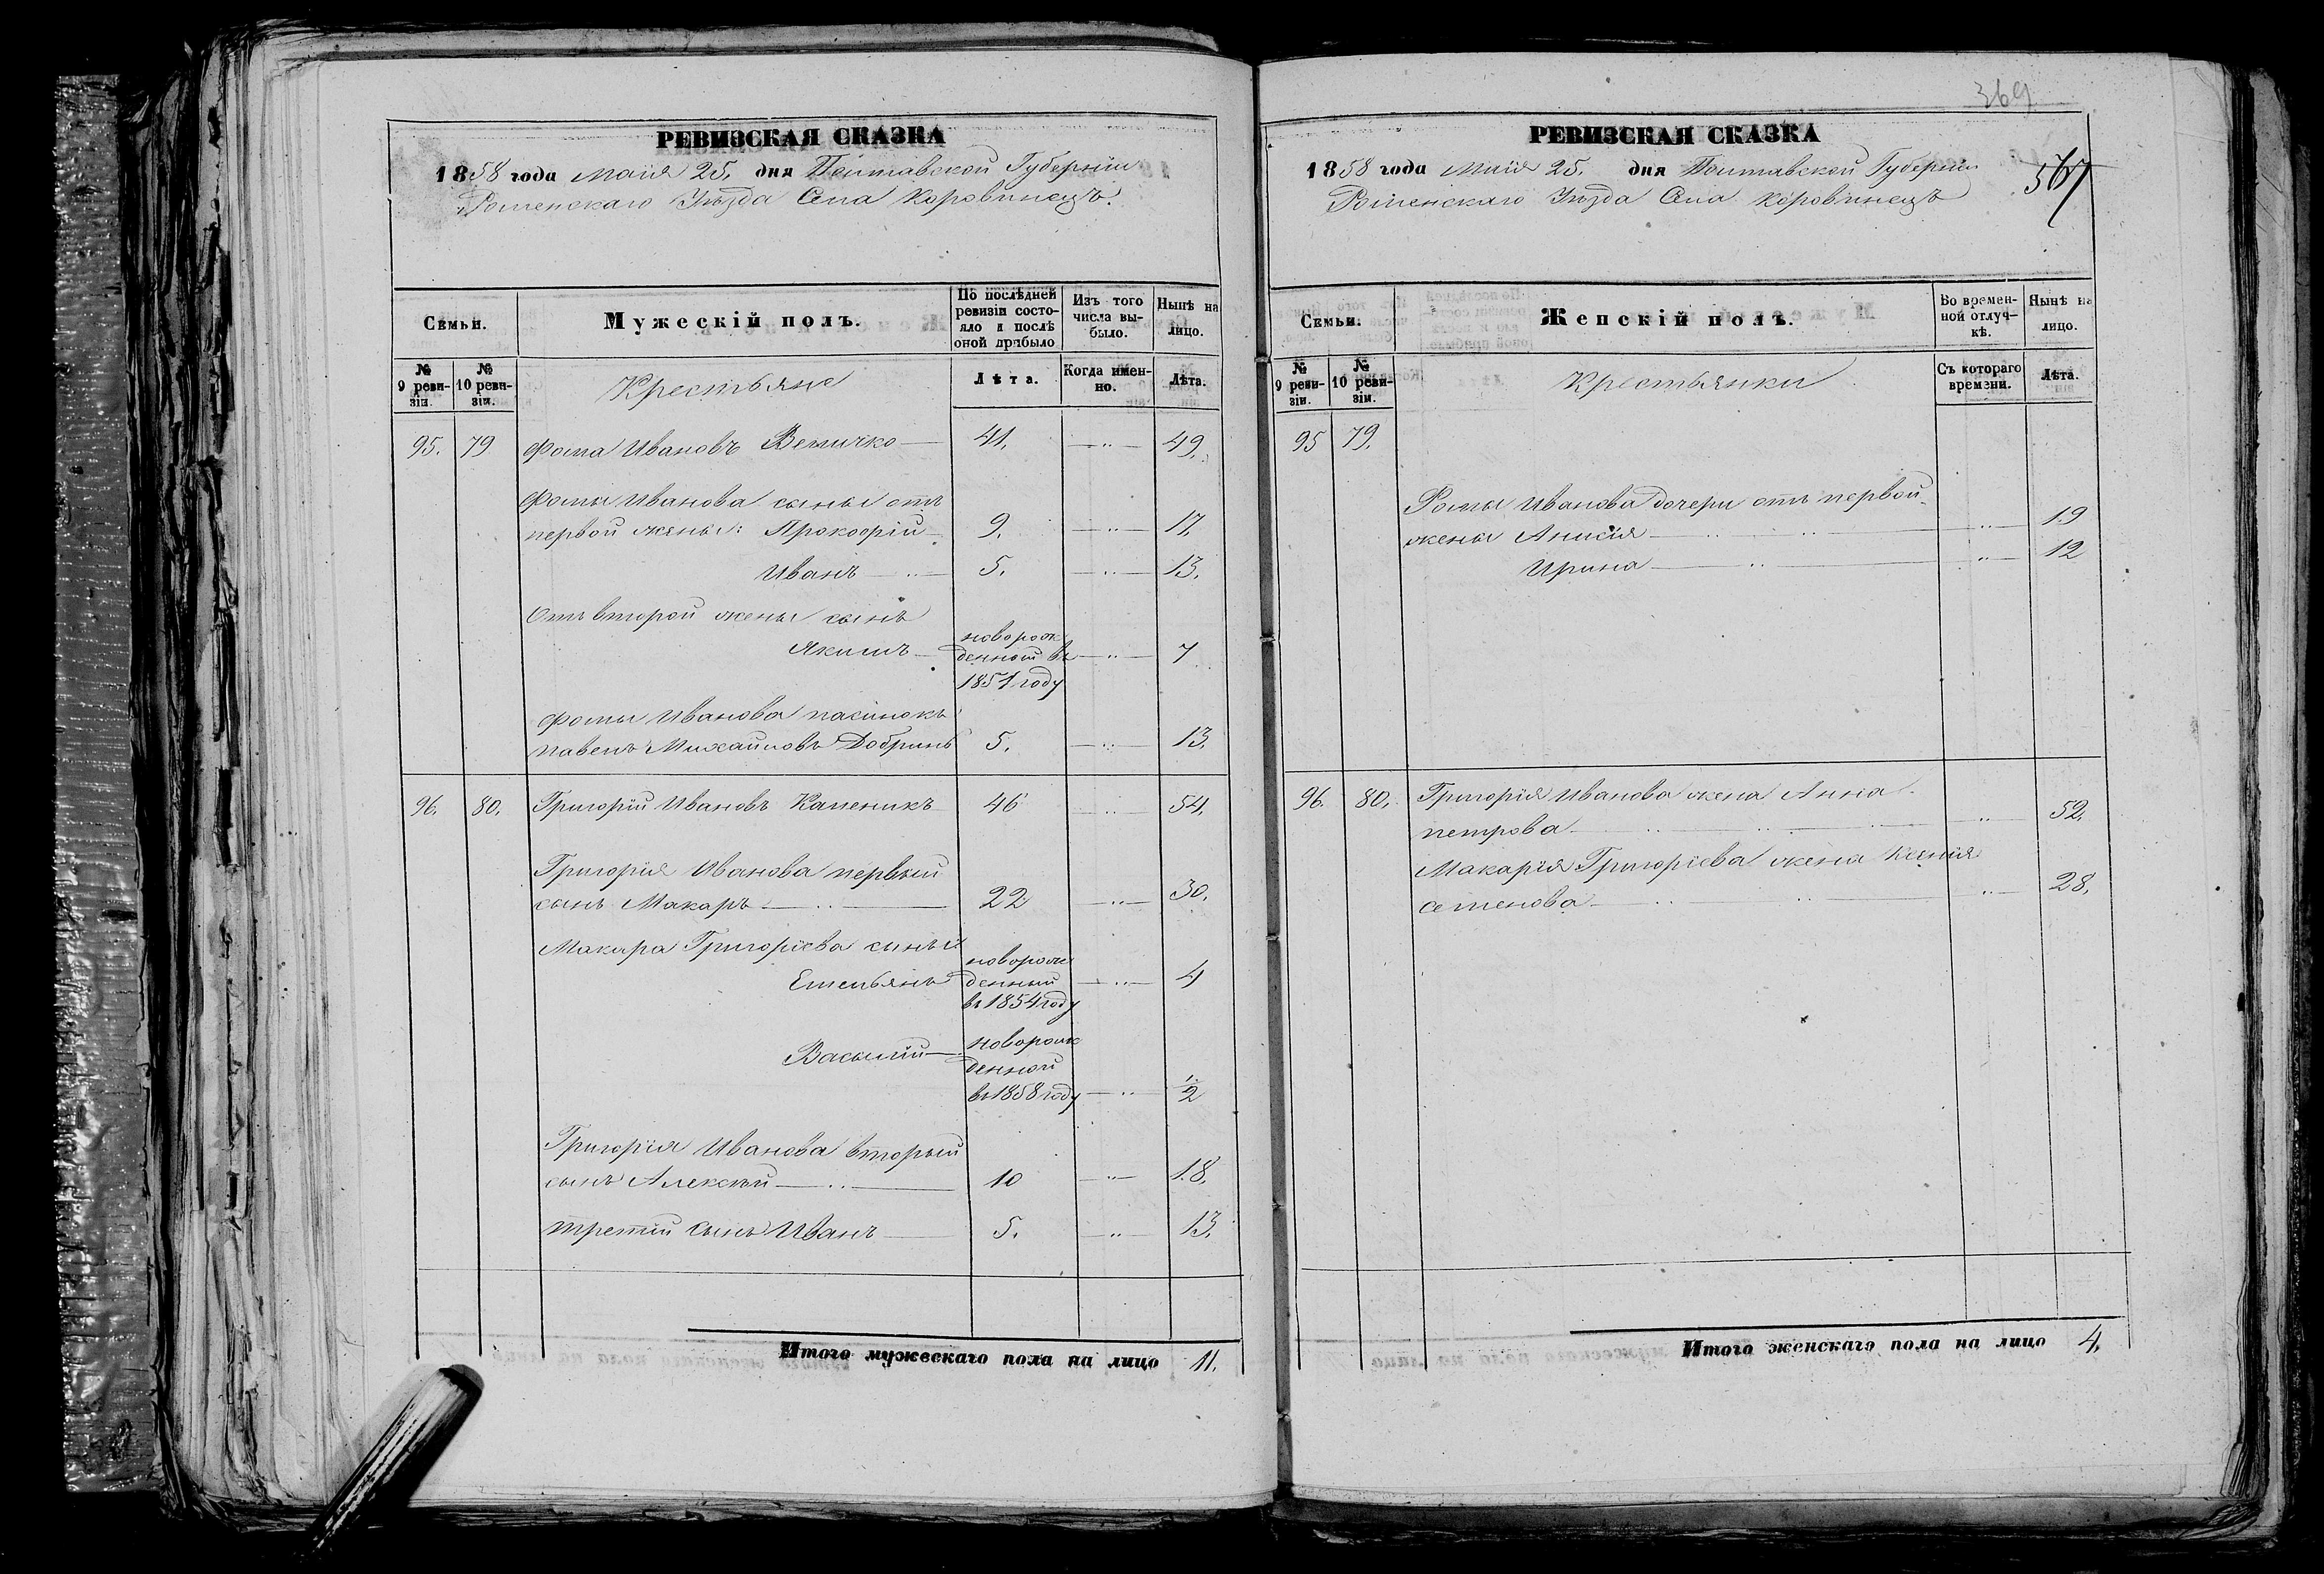 РЕВИЗСКАЯ СКАЗКА
1858 года Маія 25. дня Полтавской Губерніи
Роменскаго Уѣзда Села Коровинецъ.
Семьи.
Мужескій полъ.
По послѣдней ревизіи состояло и послѣ оной прибыло
Изъ того числа выбыло.
Нынѣ на лицо.
№ 9 ревизіи.
№ 10 ревизіи.
Крестьяне
Лѣта.
Когда именно.
Лѣта.
95. 79 Фома Ивановъ Величко 41. 49.
Фомы Иванова сыны отъ
первой жены: Прокофій 9. 17.
Иванъ 5. 13.
Отъ второй жены сынъ
Якимъ новорожденной въ 1851 году 7
Фомы Иванова пасинокъ
Павелъ Михайловъ Добринь 5. 13.
96. 80. Григорій Ивановъ Каленикъ 46 54.
Григорія Иванова первый
сынъ Макаръ 22 30.
Макара Григоріева сыны
Емельянъ новорожденный въ 1854 году 4
Василій новорожденной въ 1858 году 1/2
Григорія Иванова вторый
сынъ Алексѣй 10 18.
третій сынъ Иванъ 5. 13.
Итого мужескаго пола на лицо 11.
369
РЕВИЗСКАЯ СКАЗКА
1858 года Маія 25. дня Полтавской Губерніи
Роменскаго Уѣзда Села Коровинецъ
Семьи.
Женскій полъ.
Во временной отлучкѣ.
Нынѣ на лицо.
№ 9 ревизіи.
№ 10 ревизіи.
Крестьянки
Съ котораго времени.
Лѣта.
95 79.
Фомы Иванова дочери отъ первой
жены Анисія 19
Ирина 12
96. 80. Григорія Иванова жена Анна
Петрова 52.
Макарія Григоріева жена Ксенія
Семенова 28.
Итого женскаго пола на лицо 4.